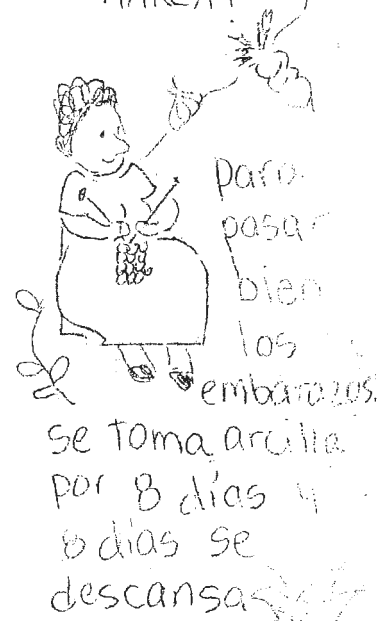 para
pasar
bien
los
embarazos
se toma arcilla
por 8 días y
8 días se
descansa